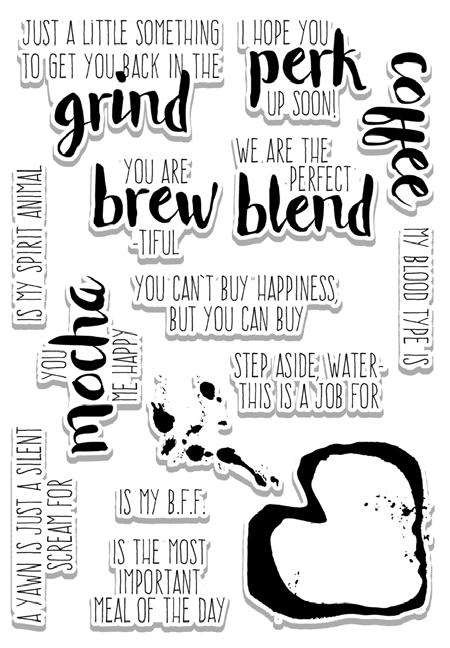 JUST A LITTLE SOMETHING
TO GET YOU BACK IN THE
grind
I HOPE YOU
perk
UP SOON!
coffee
YOU ARE
brew
-TIFUL
WE ARE THE
PERFECT
blend
IS MY SPIRIT ANIMAL
MY BLOOD TYPE IS
YOU CAN'T BUY HAPPINESS,
BUT YOU CAN BUY
YOU
mocha
ME HAPPY
STEP ASIDE, WATER-
THIS IS A JOB FOR
A YAWN IS JUST A SILENT
SCREAM FOR
IS MY B.F.F.
IS THE MOST
IMPORTANT
MEAL OF THE DAY